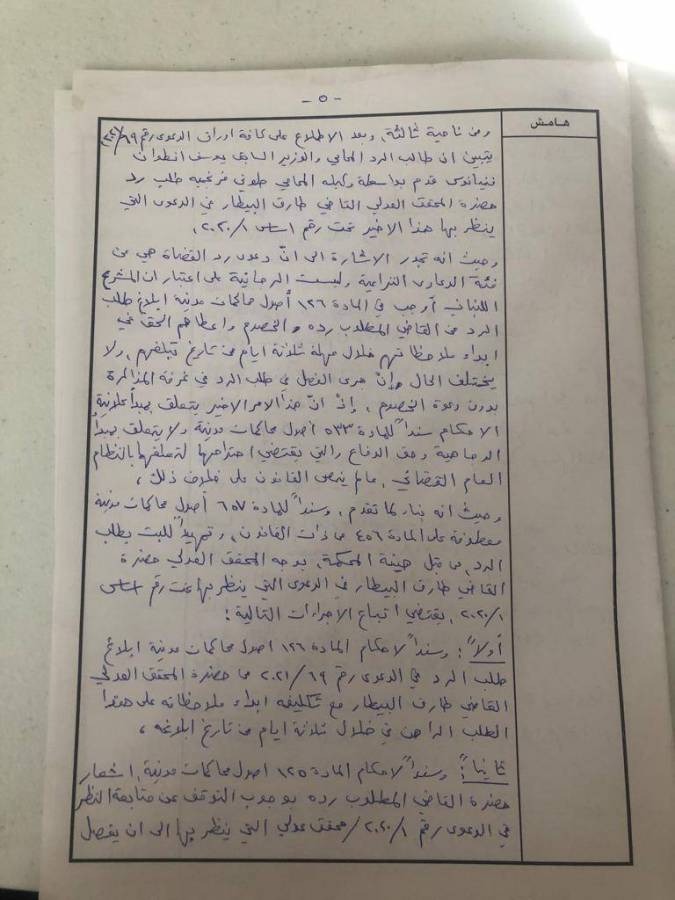 - ٥ -
هامش
ومن ناحية ثالثة، وبعد الاطلاع على كافة اوراق الدعوى رقم ٦٩/٢٠٢١
يتبين ان طالب الرد المحامي والوزير السابق يوسف انطوان
فنيانوس قدم بواسطة وكيله المحامي طوني فرنجيه طلب رد
حضرة المحقق العدلي القاضي طارق البيطار في الدعوى التي
ينظر بها هذا الاخير تحت رقم اساس ٢٠٢٠/١،
وحيث انه تجدر الاشارة الى انّ دعوى رد القضاة هي من
فئة الدعاوى النزاعية وليست الرجائية على اعتبار ان المشرع
اللبناني أوجب في المادة ١٢٦ أصول محاكمات مدنية ابلاغ طلب
الرد من القاضي المطلوب رده والخصوم واعطاهم الحق في
ابداء ملاحظاتهم خلال مهلة ثلاثة ايام من تاريخ تبلغهم، ولا
يختلف الحال وإنْ جرى الفصل في طلب الرد في غرفة المذاكرة
بدون دعوة الخصوم، إذ انّ هذا الامر الاخير يتعلق بمبدأ علانية
الاحكام سنداً للمادة ٥٣٣ أصول محاكمات مدنية ولا يتعلق بمبدأ
الوجاهية وحق الدفاع والتي يقتضي احترامها لتعلقها بالنظام
العام القضائي، ما لم ينص القانون على خلاف ذلك،
وحيث انه بناء لما تقدم، وسنداً للمادة ٦٥٧ أصول محاكمات مدنية
معطوفة على المادة ٤٥٦ من ذات القانون، وتمهيداً للبت بطلب
الرد من قبل هيئة المحكمة، بوجه المحقق العدلي حضرة
القاضي طارق البيطار في الدعوى التي ينظر بها تحت رقم اساس
٢٠٢٠/١، يقتضي اتباع الاجراءات التالية:
أولاً: وسنداً لاحكام المادة ١٢٦ اصول محاكمات مدنية ابلاغ
طلب الرد في الدعوى رقم ٢٠٢١/٦٩ من حضرة المحقق العدلي
القاضي طارق البيطار مع تكليفه ابداء ملاحظاته على هذا
الطلب الراهن في خلال ثلاثة ايام من تاريخ ابلاغه،
ثانياً: وسنداً لاحكام المادة ١٢٥ اصول محاكمات مدنية، اشعار
حضرة القاضي المطلوب رده بوجوب التوقف عن متابعة النظر
في الدعوى رقم ٢٠٢٠/١/محقق عدلي التي ينظر بها الى ان يفصل